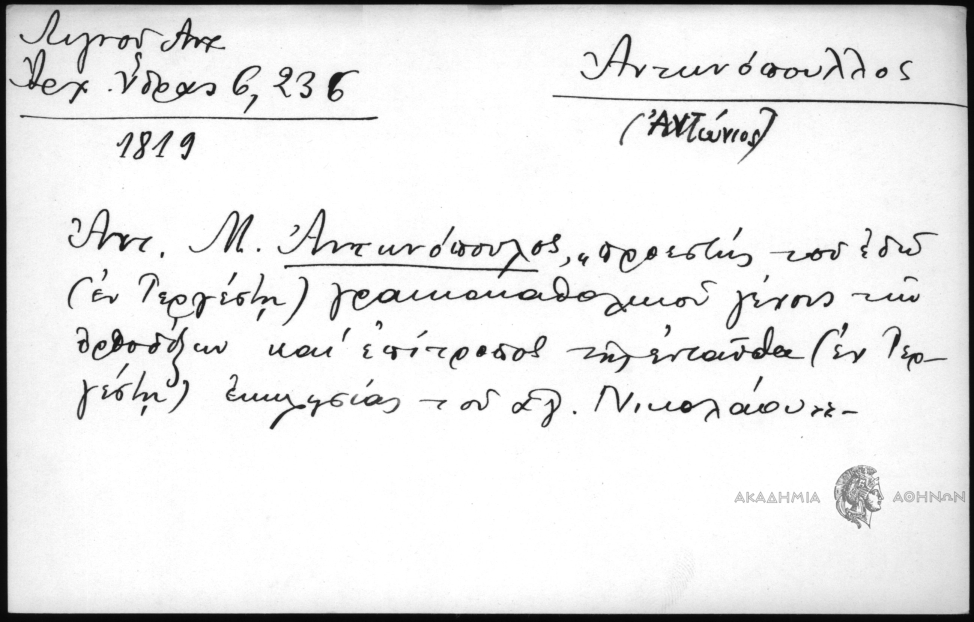 Λιγνοῦ Ἀντ
Ἀρχ. Ὕδρας 6, 236
1819
Ἀντωνόπουλλος
(Ἀντώνιος)
Ἀντ. Μ. Ἀντωνόπουλος, "προεστὴς τοῦ ἐδῶ
(ἐν Τεργέστῃ) γραικοκαθολικοῦ γένους τῶν
ὀρθοδόξων καὶ ἐπίτροπος τῆς ἐνταῦθα (ἐν Τερ-
γέστῃ) ἐκκλησίας τοῦ ἁγ. Νικολάου"-
ΑΚΑΔΗΜΙΑ ΑΘΗΝΩΝ